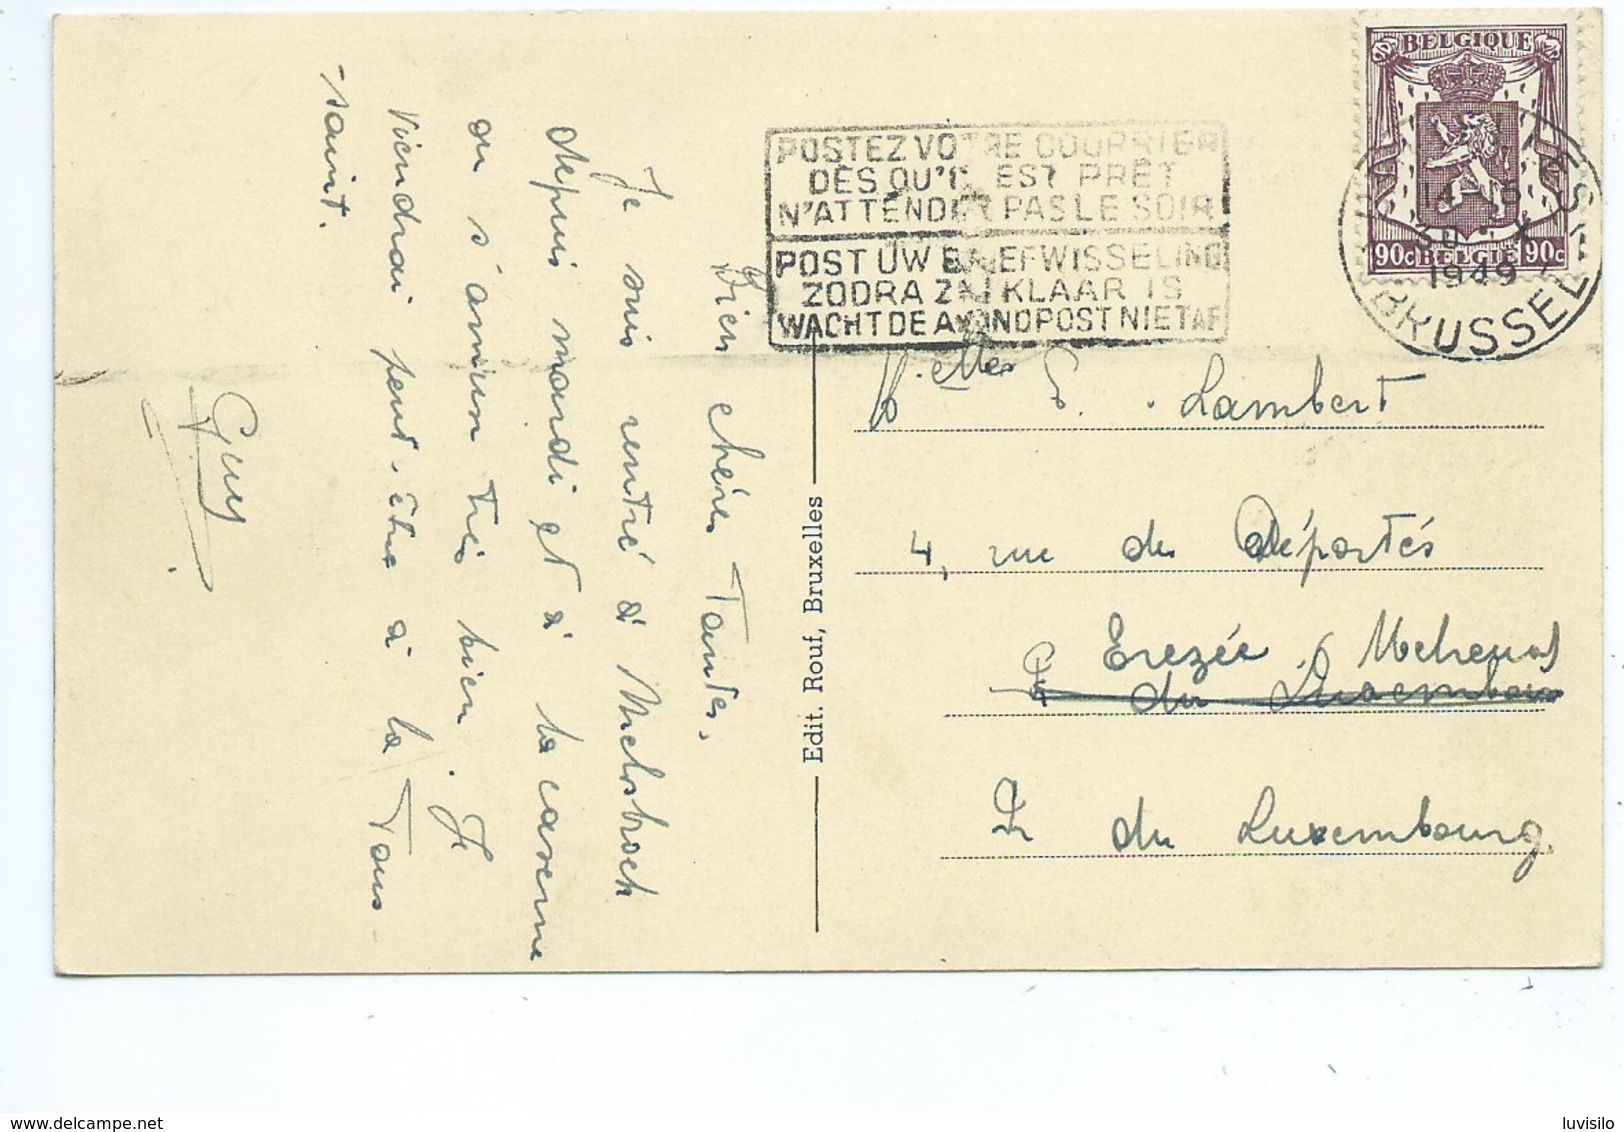 Bien chères Tantes.
Je suis rentré à Melsbroek
depuis mardi et à la caserne
on s'amuse très bien. Je
viendrai peut-être à la Tous-
-saint.
Guy
Edit. Rouf, Bruxelles
POSTEZ VOTRE COURRIER
DÈS QU'IL EST PRÊT
N'ATTENDEZ PAS LE SOIR
POST UW BRIEFWISSELING
ZODRA ZIJ KLAAR IS
WACHT DE AVONDPOST NIET AF
BELGIQUE
90c BELGIE 90c
14-15
30 · X
1949
BRUSSEL 1
Melles S. Lambert
4, rue des Déportés
Erezée / Melreux
du Luxembourg
Pr du Luxembourg.
luvisilo